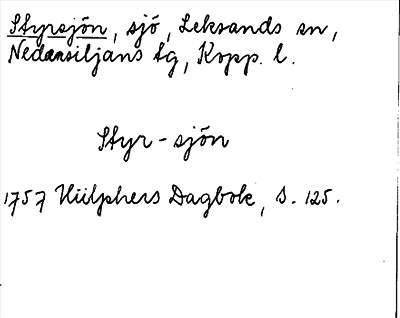 Styrsjön, sjö, Leksands sn,
Nedansiljans tg, Kopp. l.
Styr-sjön
1757 Hülphers Dagbok, s. 125.